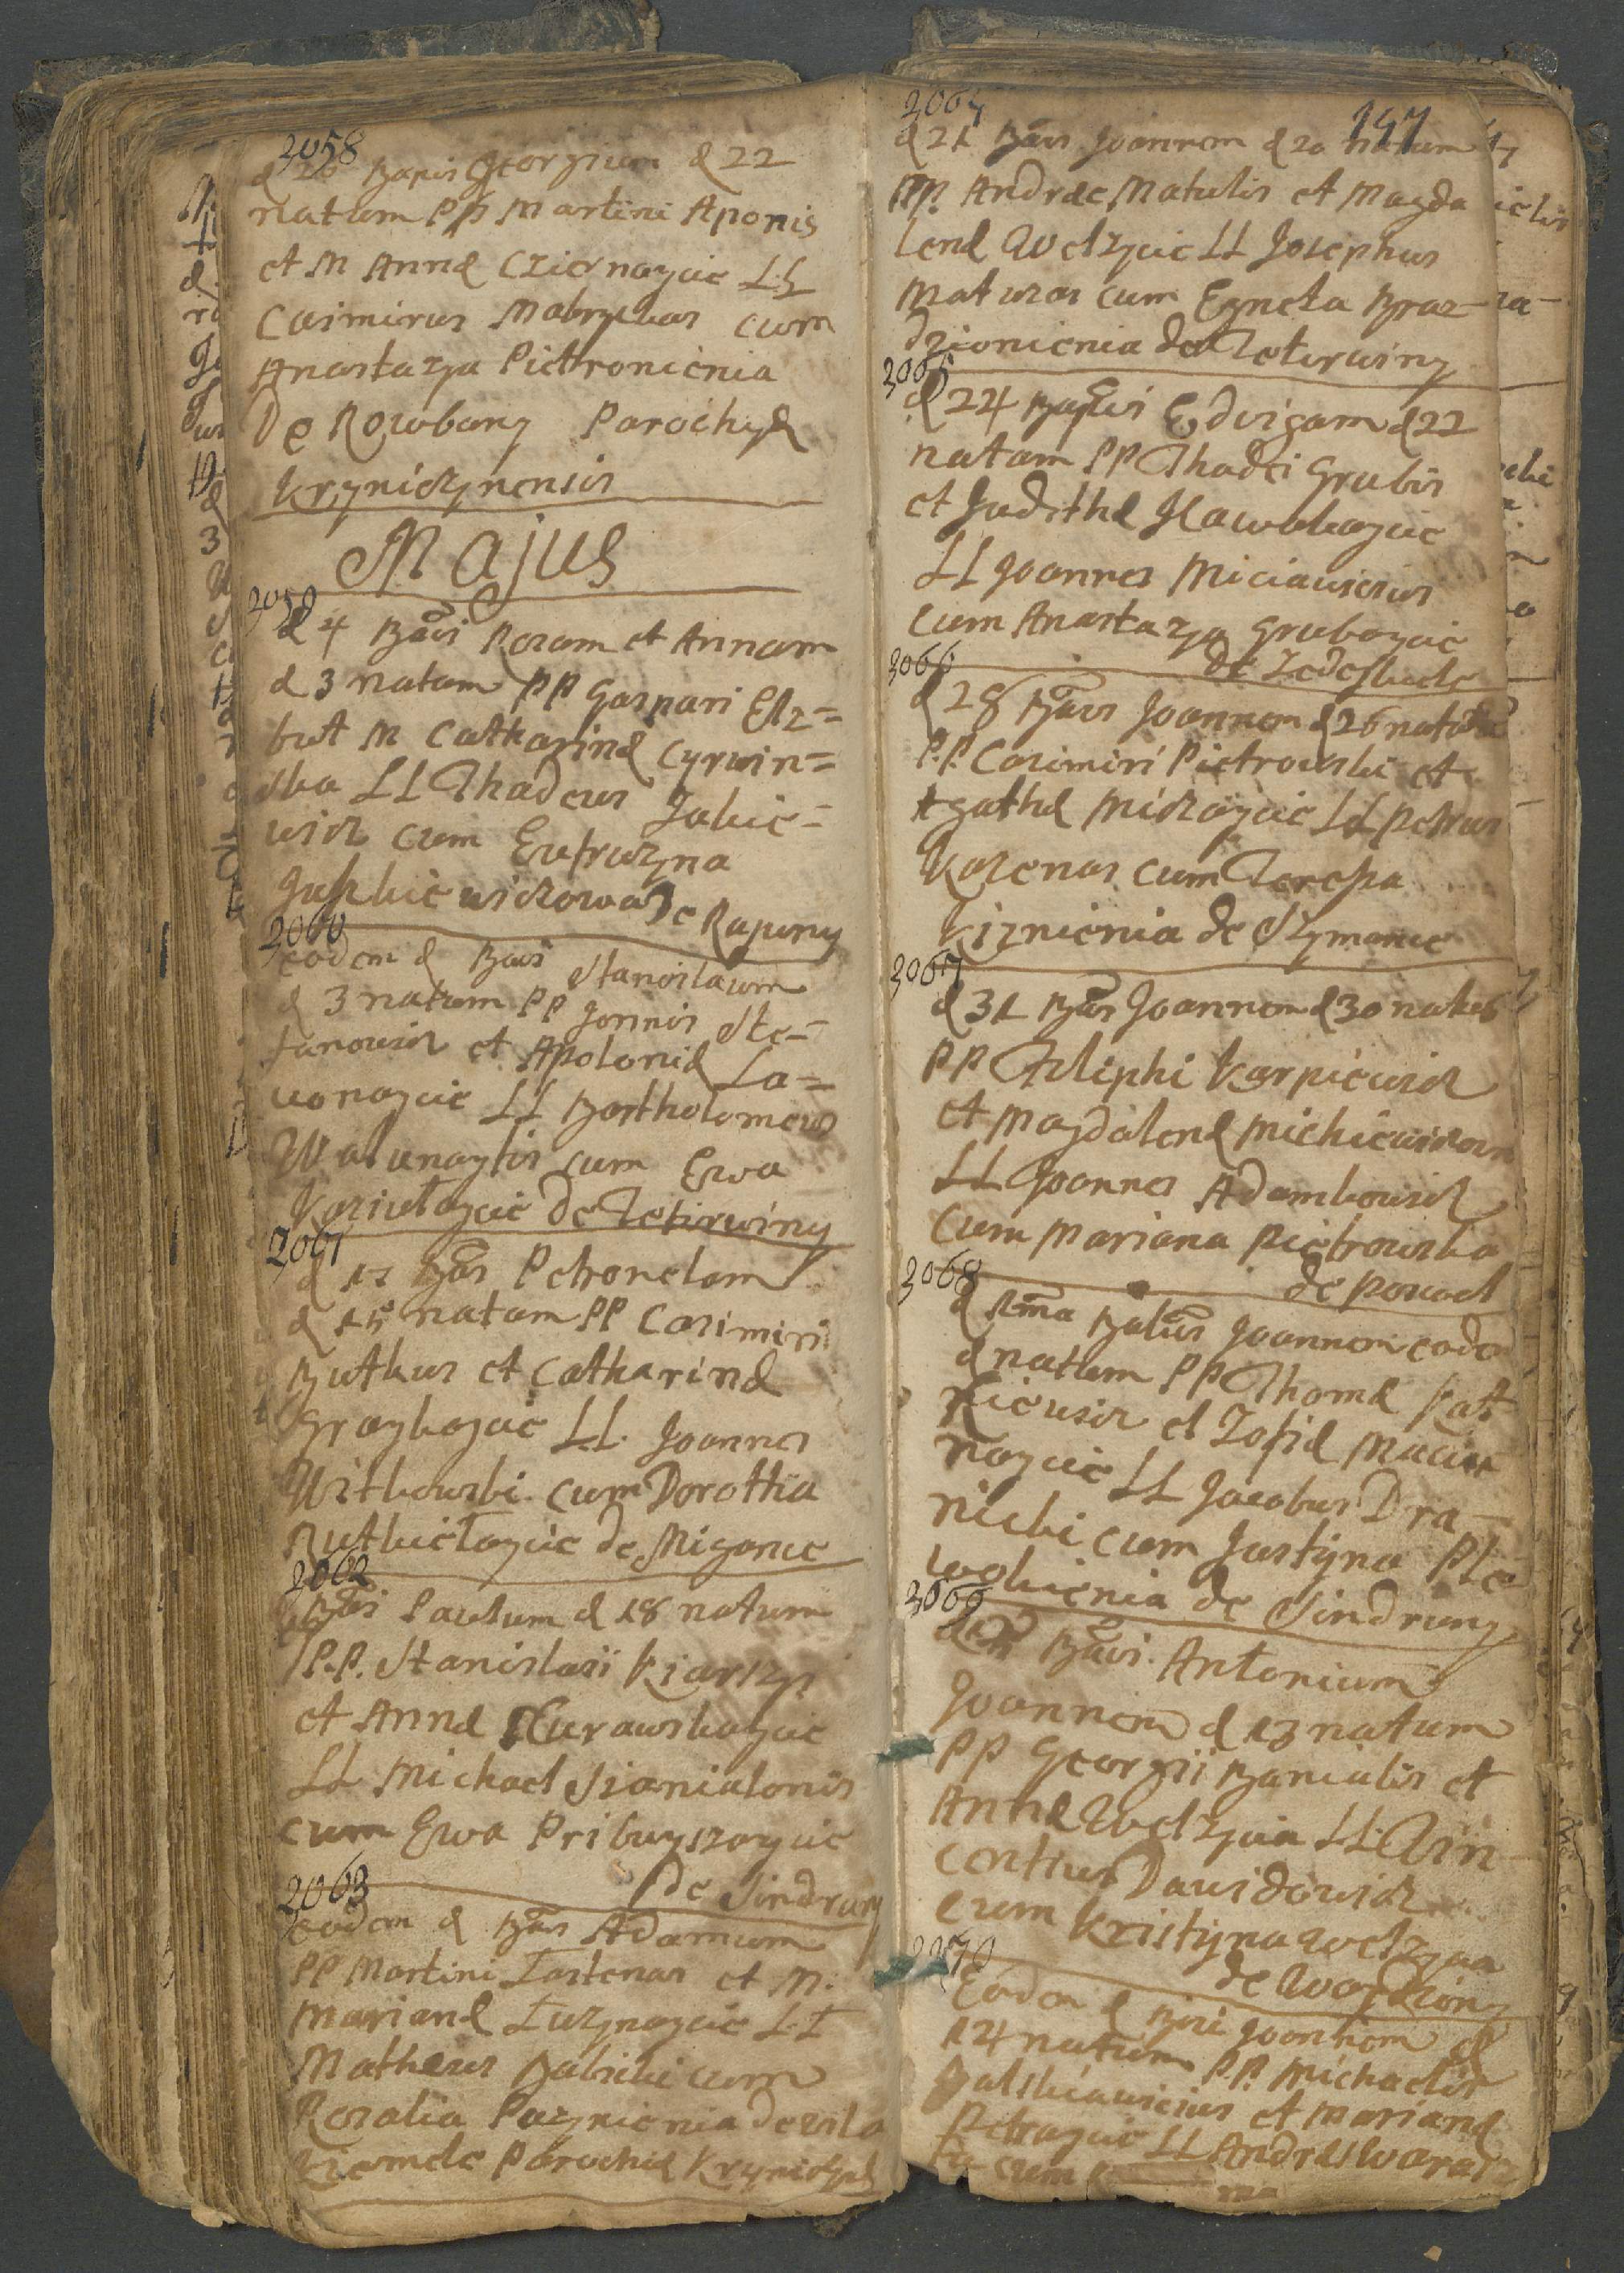 2058
d 26 Bapvi Georgium d 22
natum PP Martini Aponis
et M Annæ Cziernaycie LL
Casimirus Mabrykas cum
Anastazya Piettronienia
De Rowbany Parochyæ
Krynicznensis
Majus
2059
d 4 Bavi Rozam et Annam
d 3 natam PP Gaspari Elz=
but M Catharinæ Cyrwin=
ska LL Thadeus Jakie=
wicz cum Eufruzyna
Juszkiewiczowa De Rapuny
2060
eodem d Bavi Stanislaum
d 3 natum PP Jonnis Ste=
fanowicz et Apoloniæ La=
uonaycie LL Bartholomeus
Walunaytis cum Ewa
Kaziutaycie De Tetirwiny
2061
d 17 Bavi Petronelam
d 15 natam PP Casimiri
Butkus et Catharinæ
Graybaycie LL. Joannes
Witkowski cum Dorottia
Rutkietaycie de Miganie
2062
Bavi Paulum d 18 natum
P.P. Stanislaii Kiarszys
et Annæ Kurauskaycie
LL Michael Sianialonis
cum Ewa Pribuyszaycie
De Sindruny
2063
eodem d Bavi Adamum
PP Martini Tastenas et M.
Marianæ Luzynaycie LL
Matheus Babicki cum
Rozalia Paznienia de wila
kiemele Parochiæ Krynicznen
147
2064
d 21 Bavi Joannem d 20 natum
PP. Andræ Matulis et Magda
lenæ Welzycie LL Josephus
Matuzas cum Egneta Braz-
dzionienia de Teterwiny
2065
d 24 Baptvi Edvigam d 22
natam PP Thadei Grubis
et Judithæ Kawekaycie
LL Joannes Miciawicius
cum Anastazya Grubaycie
de Zedeykiele
2066
d 28 Bavi Joannem d 26 natum
P.P. Casimiri Pietrowski et
Agathæ Miczaycie LL Petrus
Kazenas cum Teressa
Kiznienia de Szymanie
2067
d 31 Bavi Joannem d 30 natus
PP Filiphi Karpiewicz
et Magdalenæ Mickiewiczow
LL Joannes Adamkowicz
cum Mariana Pietrowska
de Powel
2068
d 1ma Batvi Joannem eodem
d natum PP Thomæ Kat
kiewicz et Zofiæ Maciu
naycie LL Jacobus Dra-
nicki cum Justyna Ple
wokienia de Sindruny
2069
Bavi. Antonium
Joannem d 13 natum
PP Georgii Banialis et
Annæ Welzycia LL Vin-
centius Dawidowicz
cum Kristyna Welzycia
de Woydziony
2070
Eodem d Bavi Joannem d
14 natum PP. Michaelis
Balskiawicius et Marianæ
Petraycie LL Andreas Waras
cum